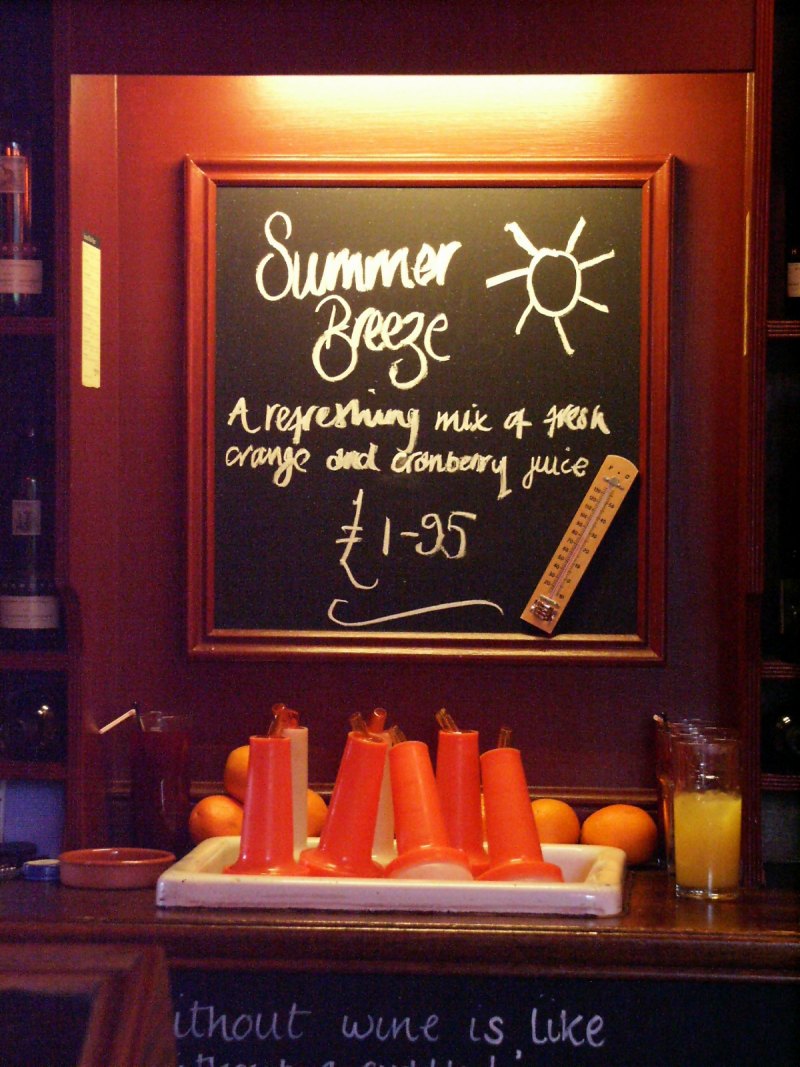 Summer
Breeze
A refreshing mix of fresh
orange and cranberry juice
£1-95
ithout wine is like